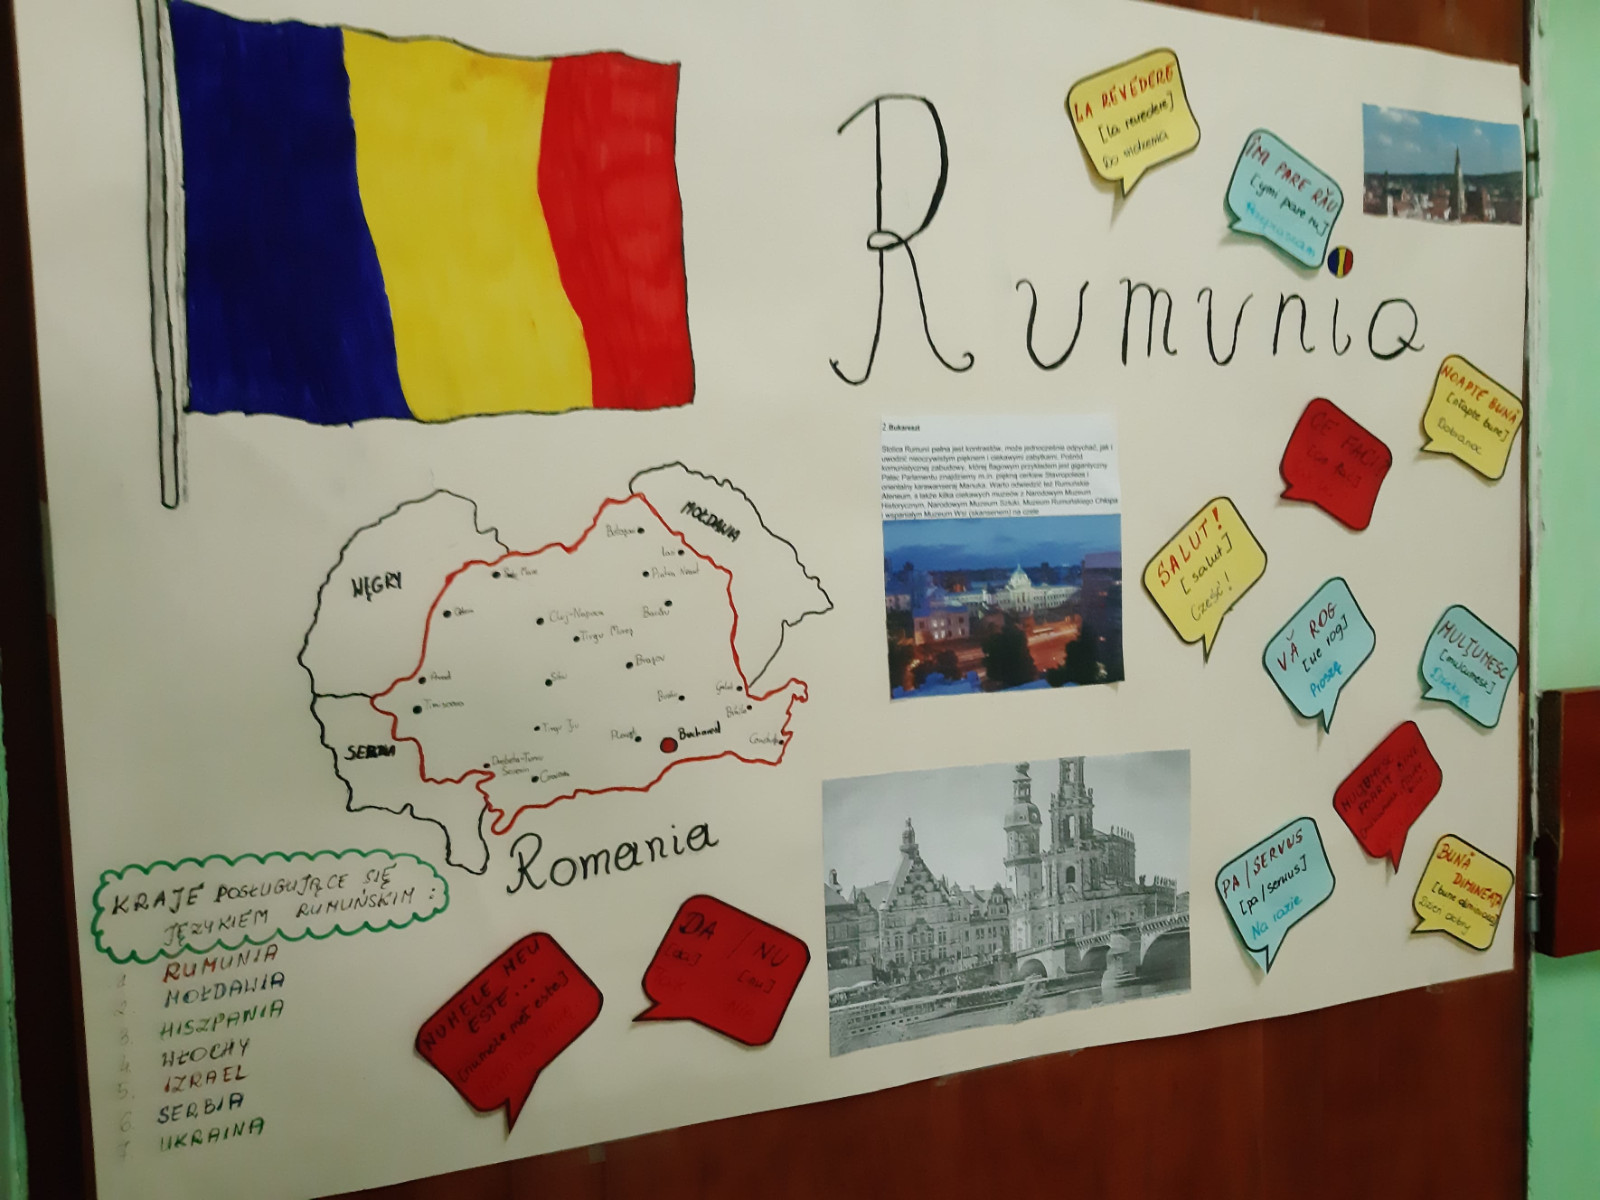 Rumunia
LA REVEDERE
[la revedere]
Do widzenia
ÎMI PARE RĂU
[ymi pare rəu]
NOAPTE BUNĂ
[nłapte bune]
Dobranoc
CE FACI?
2. Bukareszt
Stolica Rumunii pełna jest kontrastów, może jednocześnie odpychać, jak i
uwodzić nieoczywistym pięknem i ciekawymi zabytkami. Pośród
komunistycznej zabudowy, której flagowym przykładem jest gigantyczny
Pałac Parlamentu znajdziemy m.in. piękną cerkiew Stavropoleos i
orientalny karawanseraj Manuka. Warto odwiedzić też Rumuńskie
Ateneum, a także kilka ciekawych muzeów z Narodowym Muzeum
Historycznym, Narodowym Muzeum Sztuki, Muzeum Rumuńskiego Chłopa
i wspaniałym Muzeum Wsi (skansenem) na czele
SALUT!
[salut]
Cześć!
VĂ ROG
[we rog]
Proszę
MULȚUMESC
[mulcumesk]
Dziękuję
MULȚUMESC
FOARTE BINE
PA/SERVUS
[pa/serwus]
Na razie
BUNĂ
DIMINEAȚA
Dzień dobry
WĘGRY
MOŁDAWIA
SERBIA
Iasi
Piatra Neamt
Cluj-Napoca
Tirgu Mureş
Bacău
Braşov
Arad
Sibiu
Timisoara
Tirgu Jiu
Buzău
Galati
Brăila
Drobeta-Turnu
Severin
Craiova
Romania
KRAJE POSŁUGUJĄCE SIĘ
JĘZYKIEM RUMUŃSKIM:
1. RUMUNIA
2. MOŁDAWIA
3. HISZPANIA
4. WŁOCHY
5. IZRAEL
6. SERBIA
7. UKRAINA
NUMELE MEU
ESTE...
[numele meł este]
DA / NU
[da] [nu]
Tak Nie